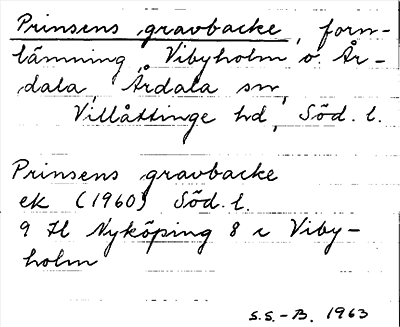 Prinsens gravbacke, forn-
lämning, Vibyholm o. År-
dala, Årdala sn,
Villåttinge hd, Söd. l.
Prinsens gravbacke
ek (1960) Söd. l.
9 H Nyköping 8 c Viby-
holm
S.S.-B. 1963